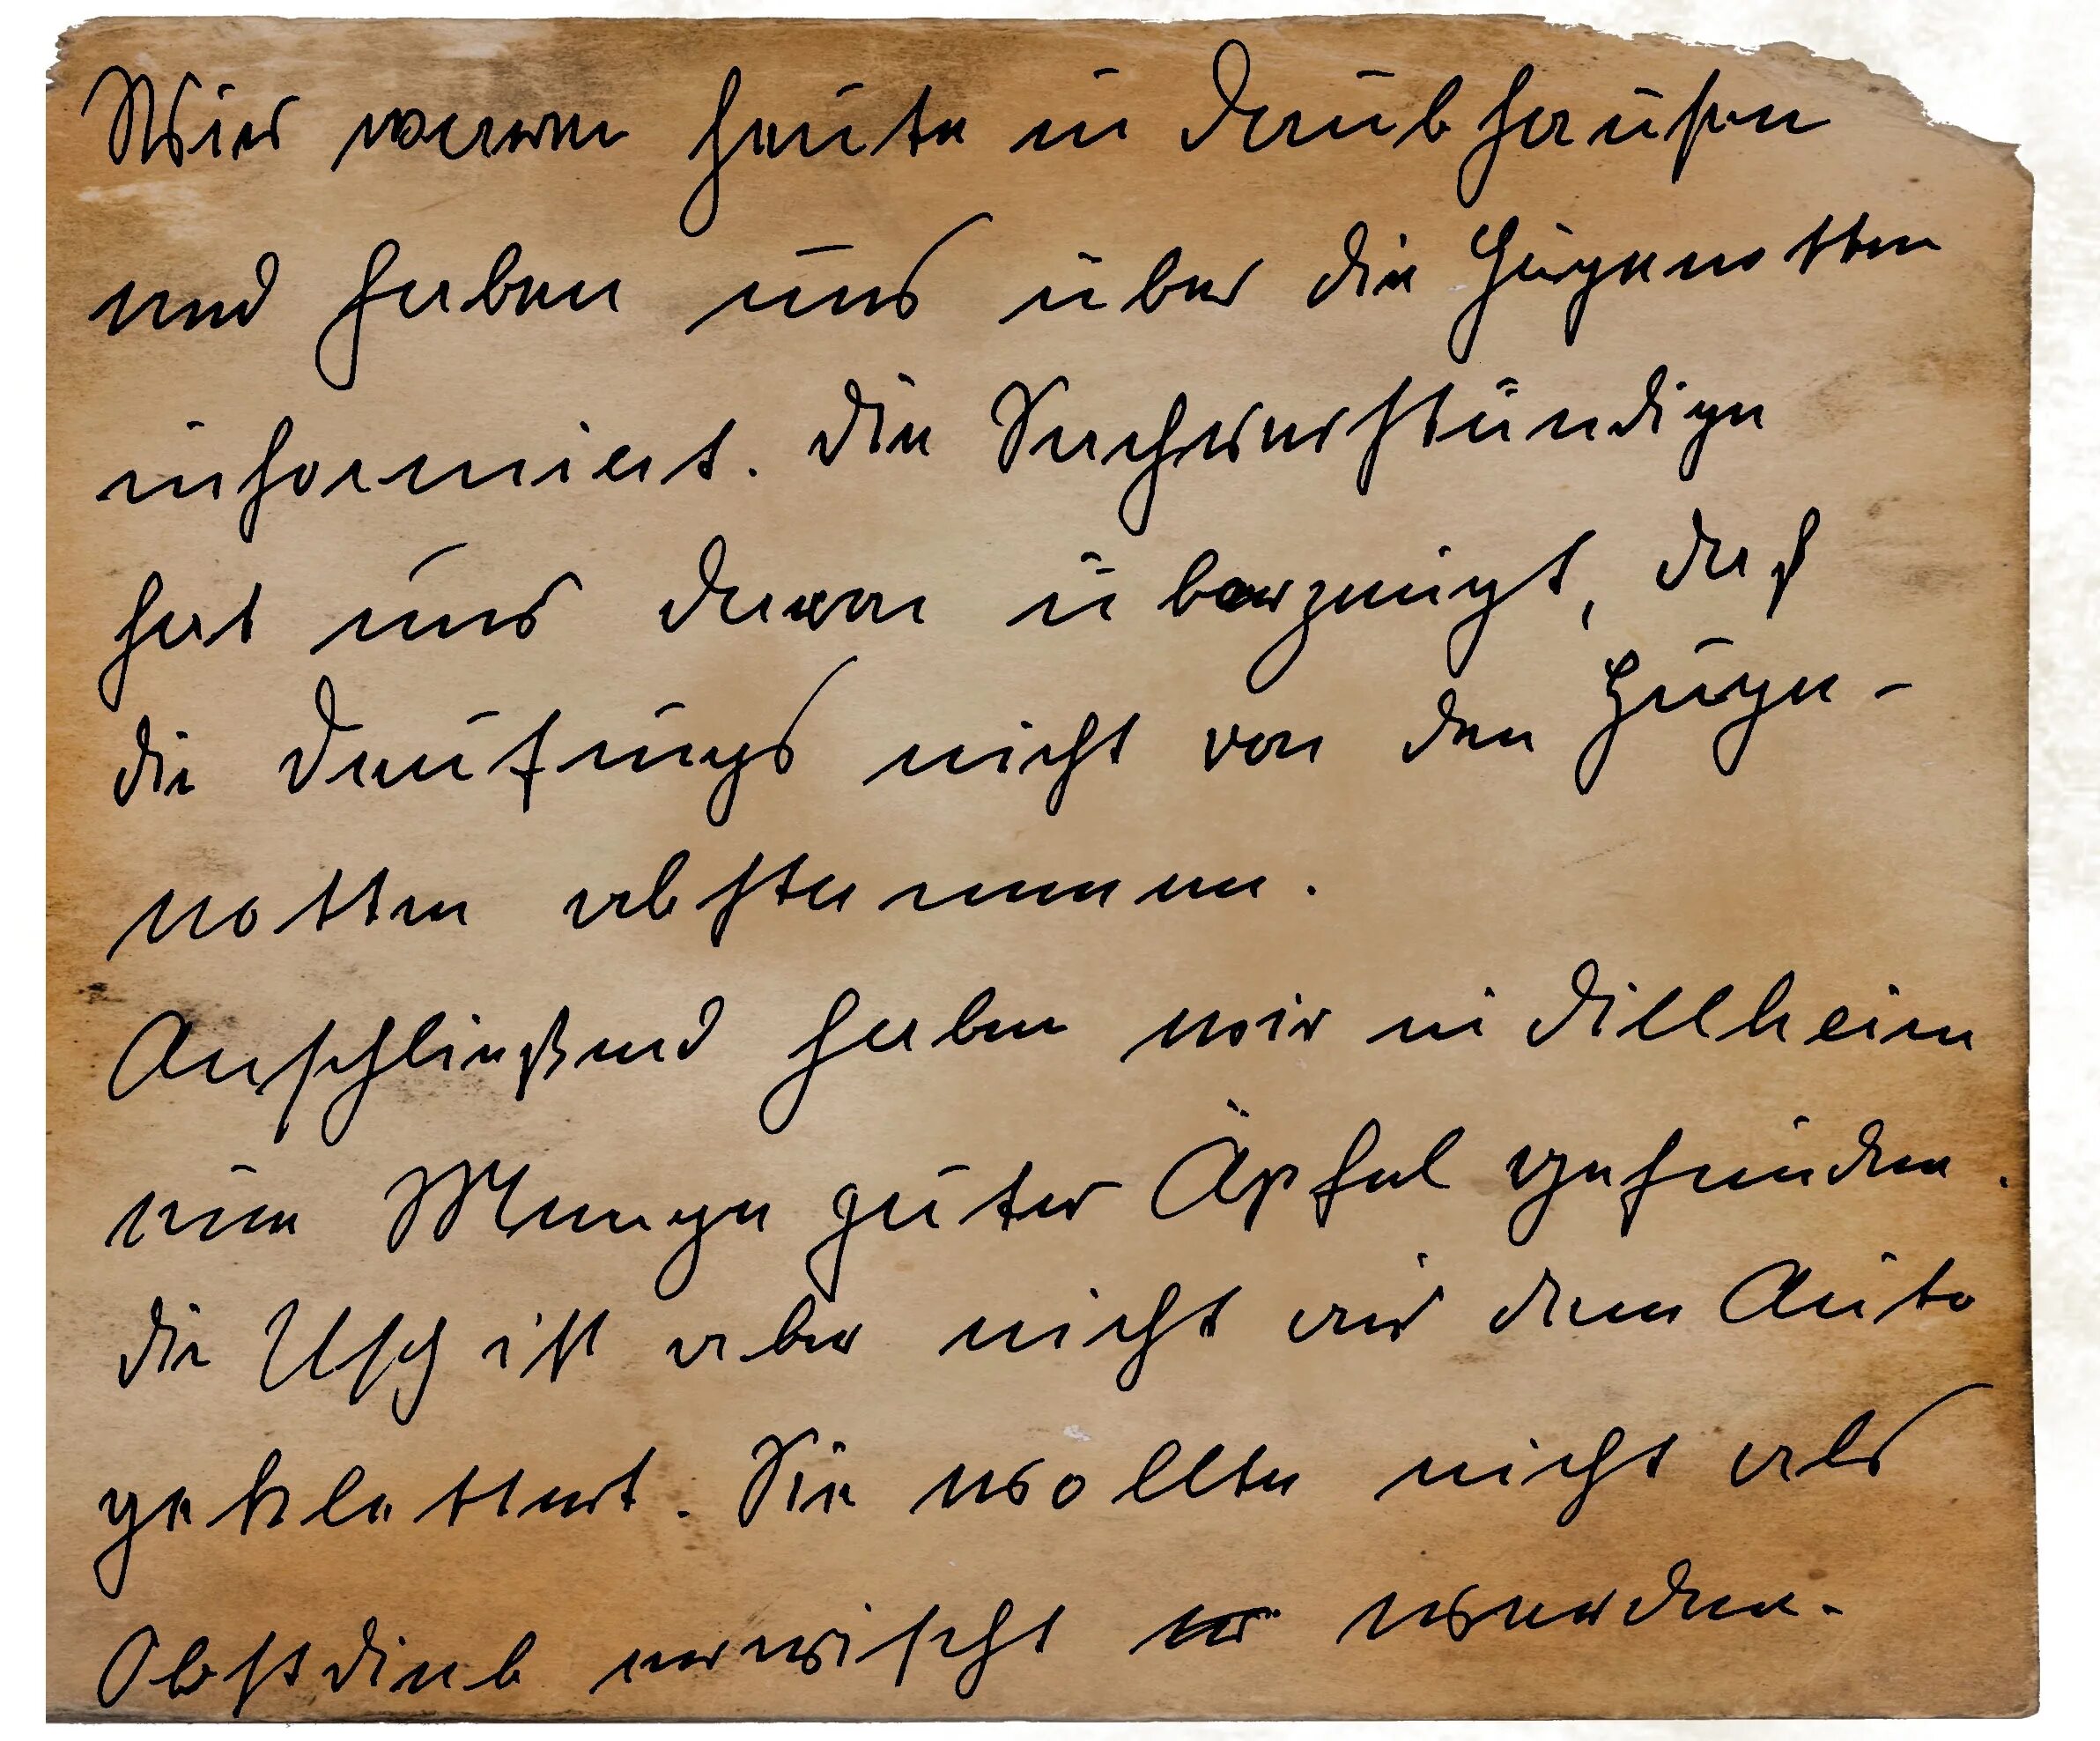 Wir waren heute in Daubhausen
und haben uns über die Hugenotten
informiert. Die Sachverständige
hat uns davon überzeugt, daß
die Deutungs nicht von den Huge-
notten abstammen.
Anschließend haben wir in Dillheim
eine Menge guter Äpfel gefunden.
die Usch ist aber nicht aus dem Auto
geklettert. Sie wollte nicht als
Obstdieb erwischt werden.